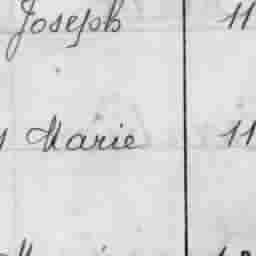 Joseph 11
Marie 11